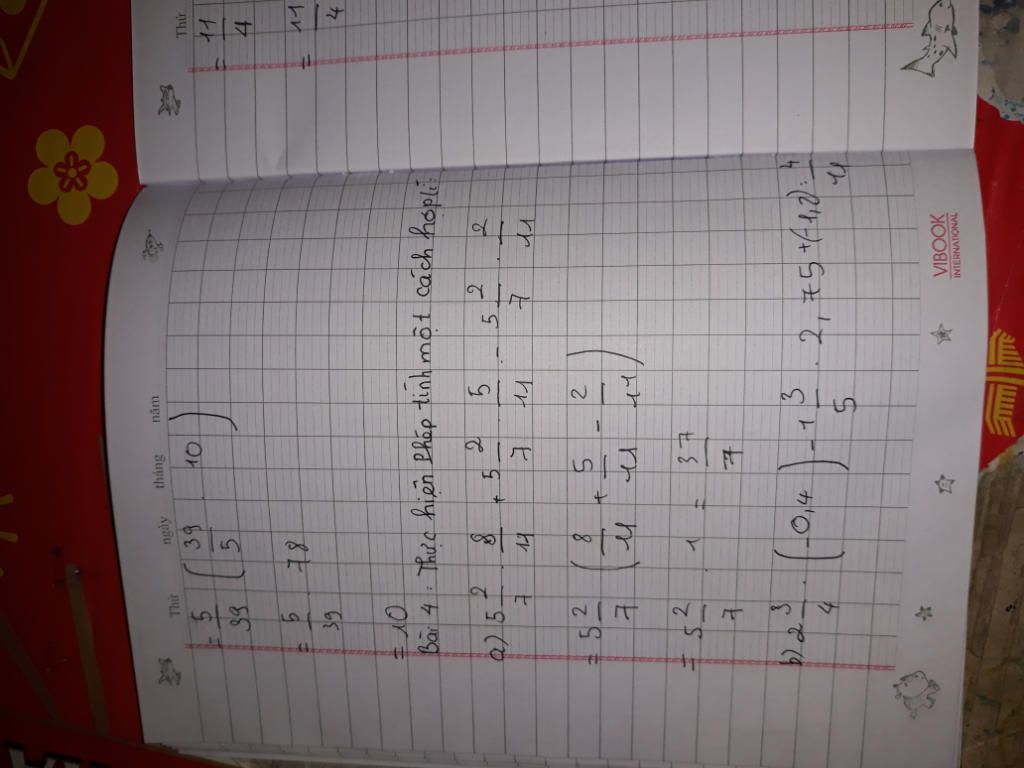 Thứ ngày tháng năm
= 5/39 (39/5 . 10)
= 5/39 . 78
= 10
Bài 4: Thực hiện phép tính một cách hợp lí:
a) 5 2/7 . 8/11 + 5 2/7 . 5/11 - 5 2/7 . 2/11
= 5 2/7 (8/11 + 5/11 - 2/11)
= 5 2/7 . 1 = 37/7
b) 2 3/4 . (-0,4) - 1 3/5 . 2,75 + (-1,2) : 4/11
VIBOOK
INTERNATIONAL
Thứ
= 11/4
= 11/4